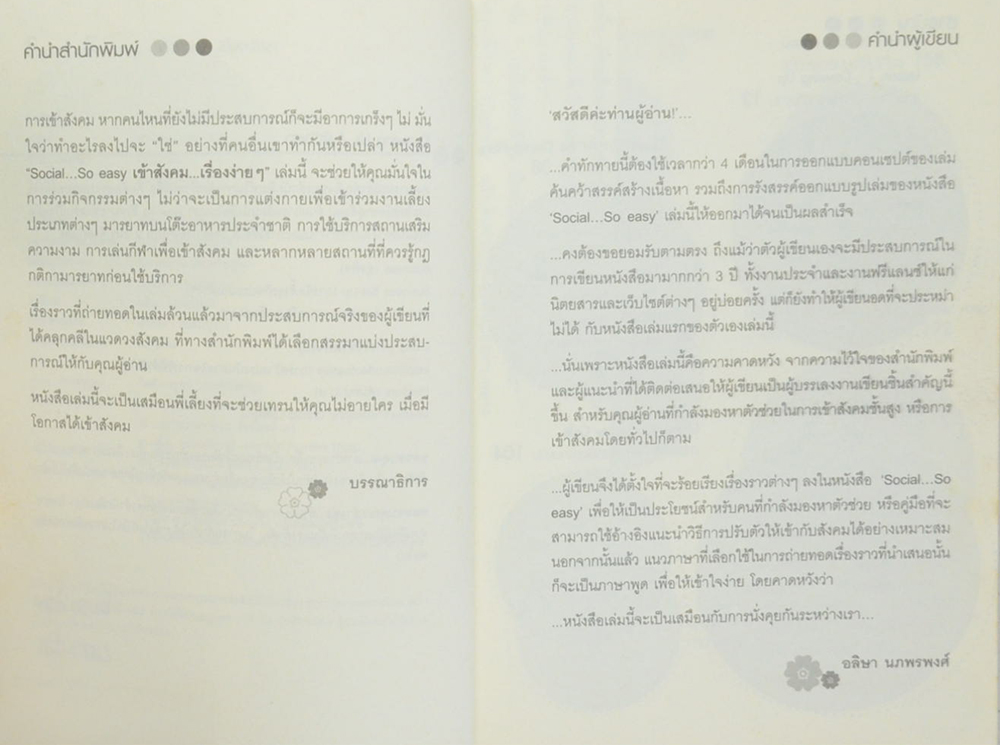 คำนำสำนักพิมพ์
การเข้าสังคม หากคนไหนที่ยังไม่มีประสบการณ์ก็จะมีอาการเกร็งๆ ไม่ มั่น
ใจว่าทำอะไรลงไปจะ “ใช่” อย่างที่คนอื่นเขาทำกันหรือเปล่า หนังสือ
“Social...So easy เข้าสังคม...เรื่องง่ายๆ” เล่มนี้ จะช่วยให้คุณมั่นใจใน
การร่วมกิจกรรมต่างๆ ไม่ว่าจะเป็นการแต่งกายเพื่อเข้าร่วมงานเลี้ยง
ประเภทต่างๆ มารยาทบนโต๊ะอาหารประจำชาติ การใช้บริการสถานเสริม
ความงาม การเล่นกีฬาเพื่อเข้าสังคม และหลากหลายสถานที่ที่ควรรู้กฎ
กติกามารยาทก่อนใช้บริการ
เรื่องราวที่ถ่ายทอดในเล่มล้วนแล้วมาจากประสบการณ์จริงของผู้เขียนที่
ได้คลุกคลีในแวดวงสังคม ที่ทางสำนักพิมพ์ได้เลือกสรรมาแบ่งประสบ-
การณ์ให้กับคุณผู้อ่าน
หนังสือเล่มนี้จะเป็นเสมือนพี่เลี้ยงที่จะช่วยเทรนให้คุณไม่อายใคร เมื่อมี
โอกาสได้เข้าสังคม
บรรณาธิการ
คำนำผู้เขียน
‘สวัสดีค่ะท่านผู้อ่าน!’...
...คำทักทายนี้ต้องใช้เวลากว่า 4 เดือนในการออกแบบคอนเซปต์ของเล่ม
ค้นคว้าสรรค์สร้างเนื้อหา รวมถึงการรังสรรค์ออกแบบรูปเล่มของหนังสือ
‘Social...So easy’ เล่มนี้ให้ออกมาได้จนเป็นผลสำเร็จ
...คงต้องขอยอมรับตามตรง ถึงแม้ว่าตัวผู้เขียนเองจะมีประสบการณ์ใน
การเขียนหนังสือมามากกว่า 3 ปี ทั้งงานประจำและงานฟรีแลนซ์ให้แก่
นิตยสารและเว็บไซต์ต่างๆ อยู่บ่อยครั้ง แต่ก็ยังทำให้ผู้เขียนอดที่จะประหม่า
ไม่ได้ กับหนังสือเล่มแรกของตัวเองเล่มนี้
...นั่นเพราะหนังสือเล่มนี้คือความคาดหวัง จากความไว้ใจของสำนักพิมพ์
และผู้แนะนำที่ได้ติดต่อเสนอให้ผู้เขียนเป็นผู้บรรเลงงานเขียนชิ้นสำคัญนี้
ขึ้น สำหรับคุณผู้อ่านที่กำลังมองหาตัวช่วยในการเข้าสังคมชั้นสูง หรือการ
เข้าสังคมโดยทั่วไปก็ตาม
...ผู้เขียนจึงได้ตั้งใจที่จะร้อยเรียงเรื่องราวต่างๆ ลงในหนังสือ ‘Social...So
easy’ เพื่อให้เป็นประโยชน์สำหรับคนที่กำลังมองหาตัวช่วย หรือคู่มือที่จะ
สามารถใช้อ้างอิงแนะนำวิธีการปรับตัวให้เข้ากับสังคมได้อย่างเหมาะสม
นอกจากนั้นแล้ว แนวภาษาที่เลือกใช้ในการถ่ายทอดเรื่องราวที่นำเสนอนั้น
ก็จะเป็นภาษาพูด เพื่อให้เข้าใจง่าย โดยคาดหวังว่า
...หนังสือเล่มนี้จะเป็นเสมือนกับการนั่งคุยกันระหว่างเรา...
อลิษา นภพรพงศ์